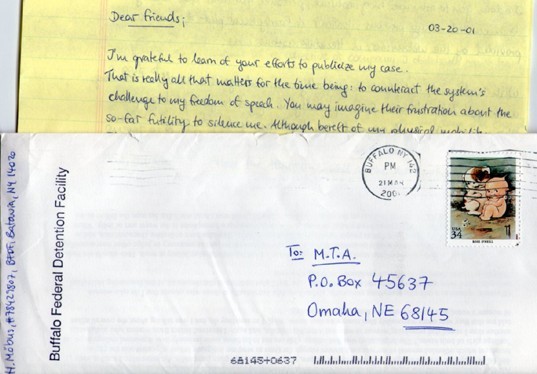 Dear friends;
03-20-01
I'm grateful to learn of your efforts to publicize my case.
That is really all that matters for the time being: to counteract the system's
challenge to my freedom of speech. You may imagine their frustration about the
so-far futility to silence me. Although bereft of my physical
H. Möbus, BFDF, Batavia, NY 14020
Buffalo Federal Detention Facility
BUFFALO NY 142
PM
21 MAR
USA
34
To: M.T.A.
P.O. Box 45637
Omaha, NE 68145
68145+0637